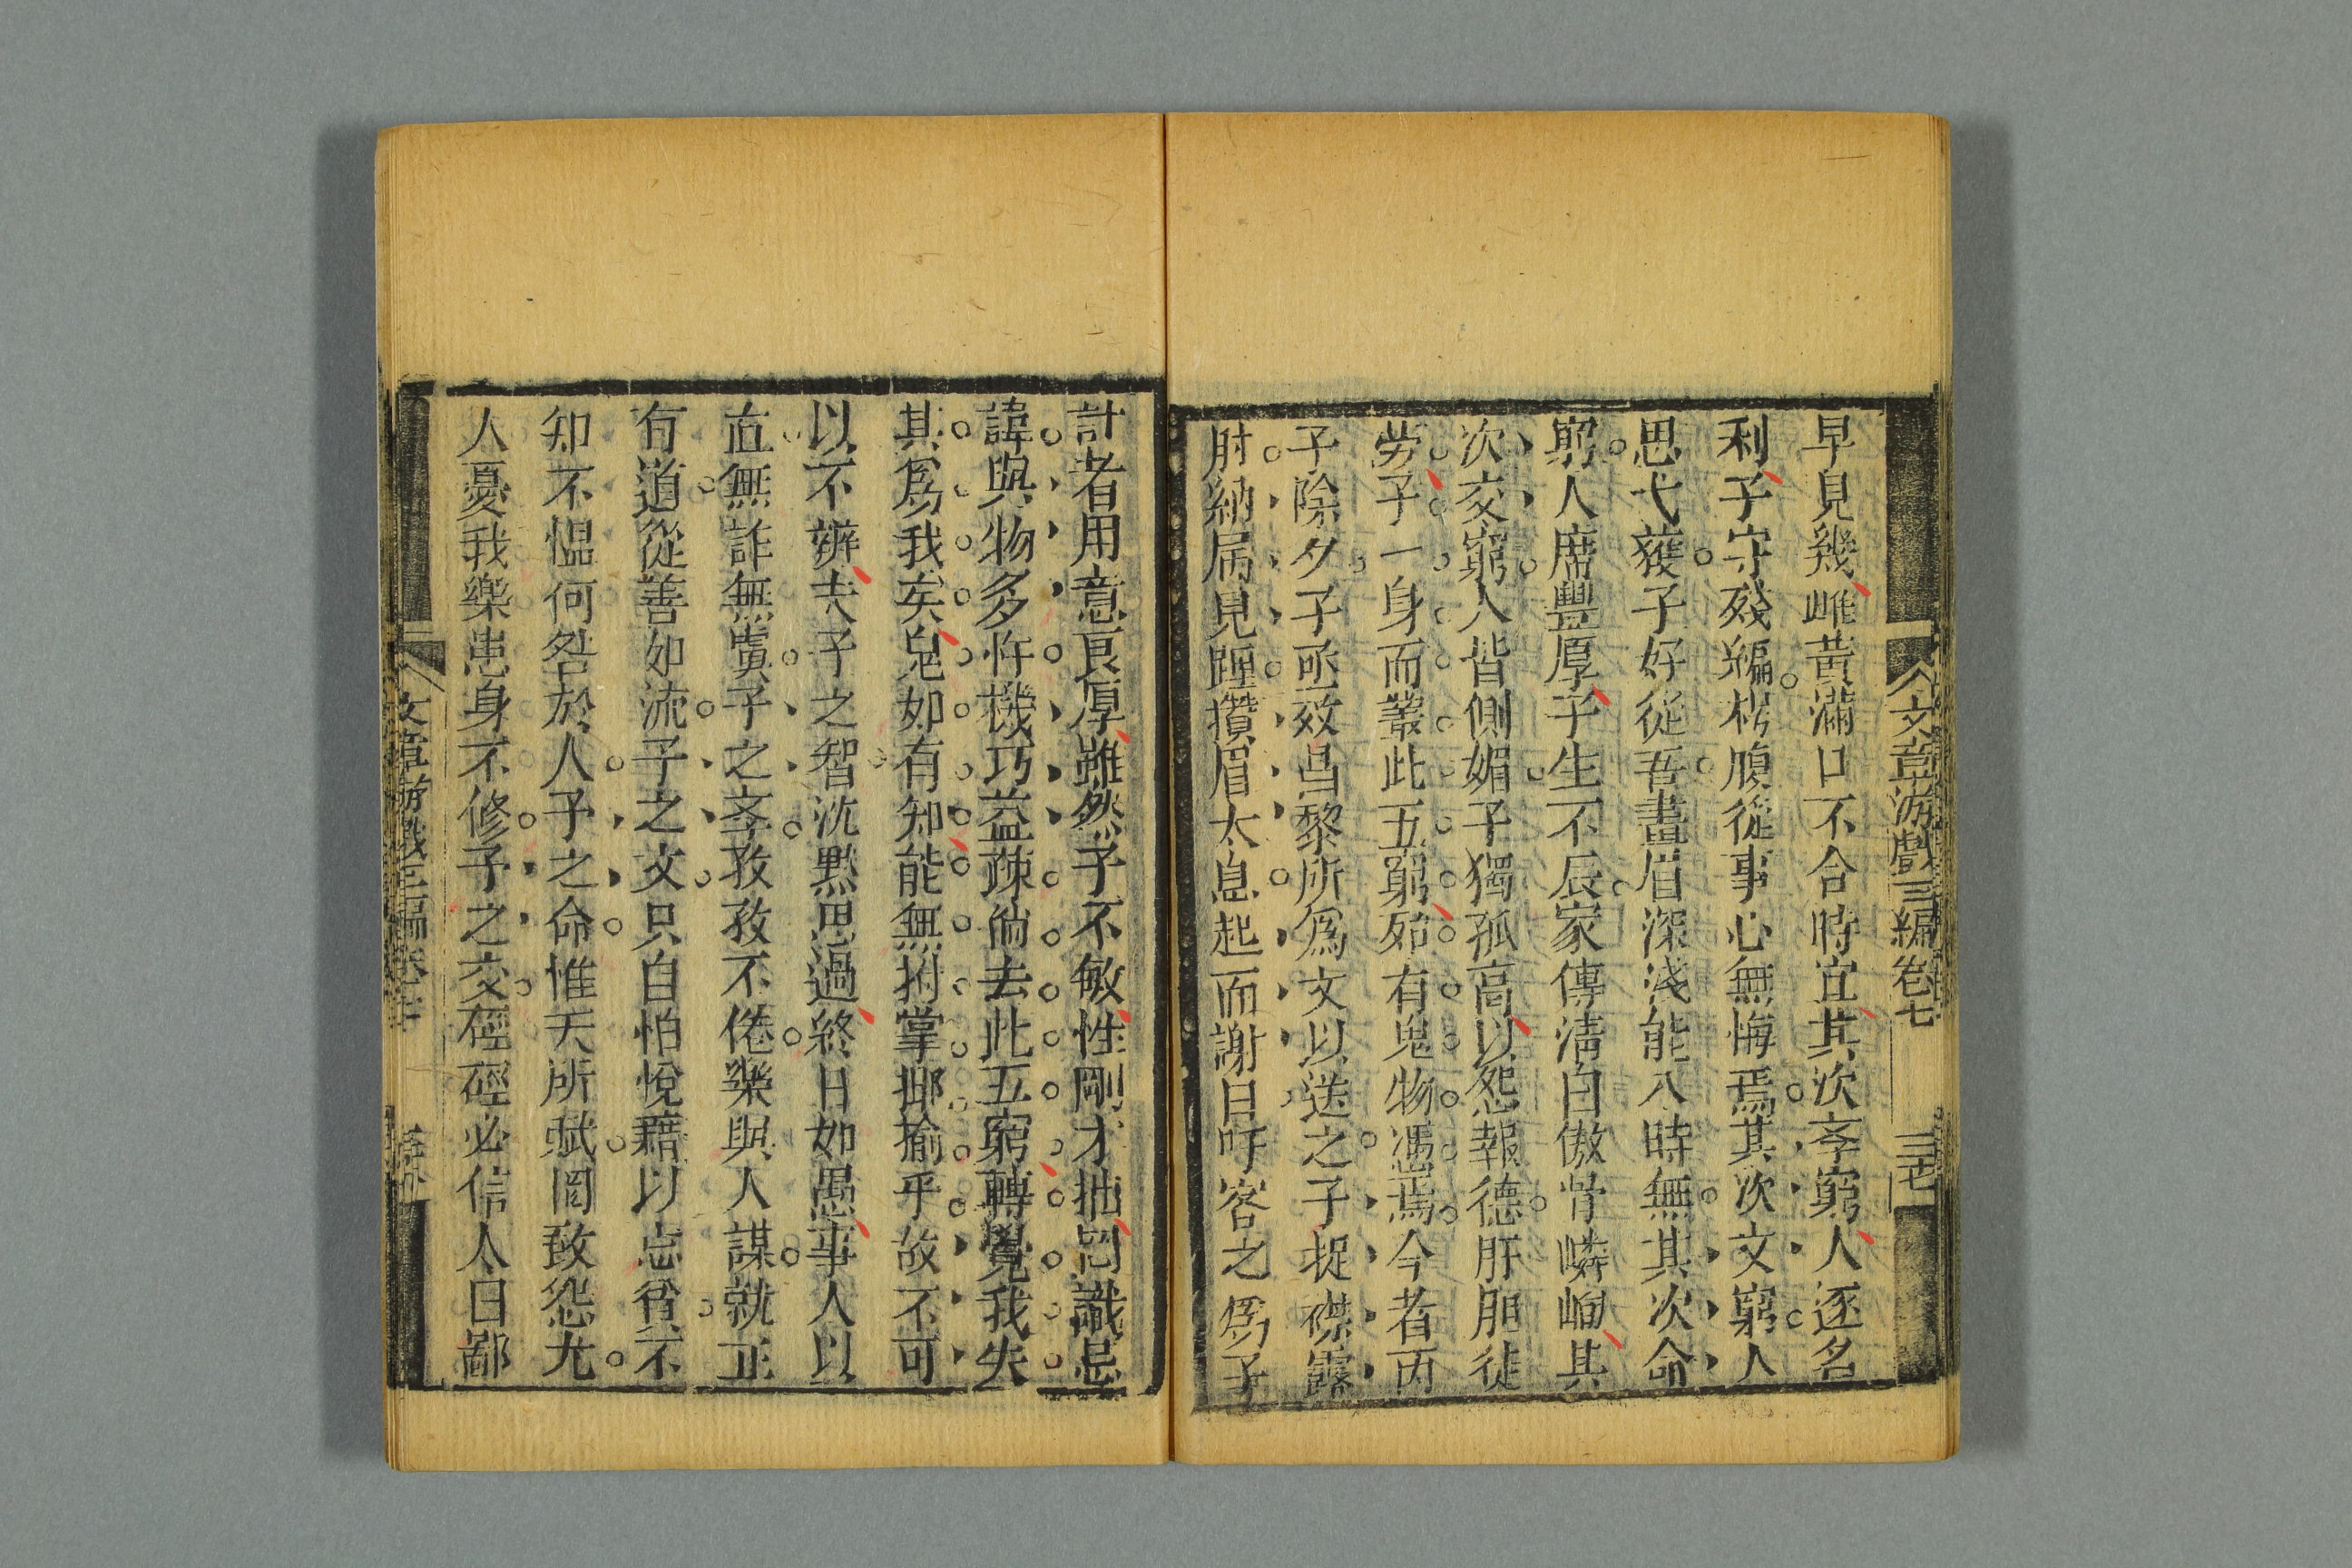 文章游戲三編卷七
三七
早見幾雌黃滿口不合時宜其次斈窮人逐名
利子守殘編枵腹從事心無悔焉其次文窮人
思弋獲子好從吾畫眉深淺能入時無其次命
窮人席豐厚子生不辰家傳淸白傲骨嶙峋其
次交窮人皆側媚子獨孤高以怨報德肝胆徒
劳子一身而叢此五窮殆有鬼物憑焉今者丙
子除夕子亟效昌黎所爲文以送之子捉襟露
肘納屨見踵攢眉太息起而謝曰吁客之爲子
計者用意良厚雖然子不敏性剛才拙罔識忌
諱與物多忤機巧益疎倘去此五窮轉覺我失
其爲我矣鬼如有知能無拊掌揶揄乎故不可
以不辨夫子之智沈默思過終日如愚事人以
直無詐無虞子之斈孜孜不倦樂與人謀就正
有道從善如流子之文只自怡悅藉以忘貧不
知不慍何咎於人子之命惟天所賦罔致怨尤
人憂我樂患身不修子之交硜硜必信人曰鄙
文章游戲三編卷七